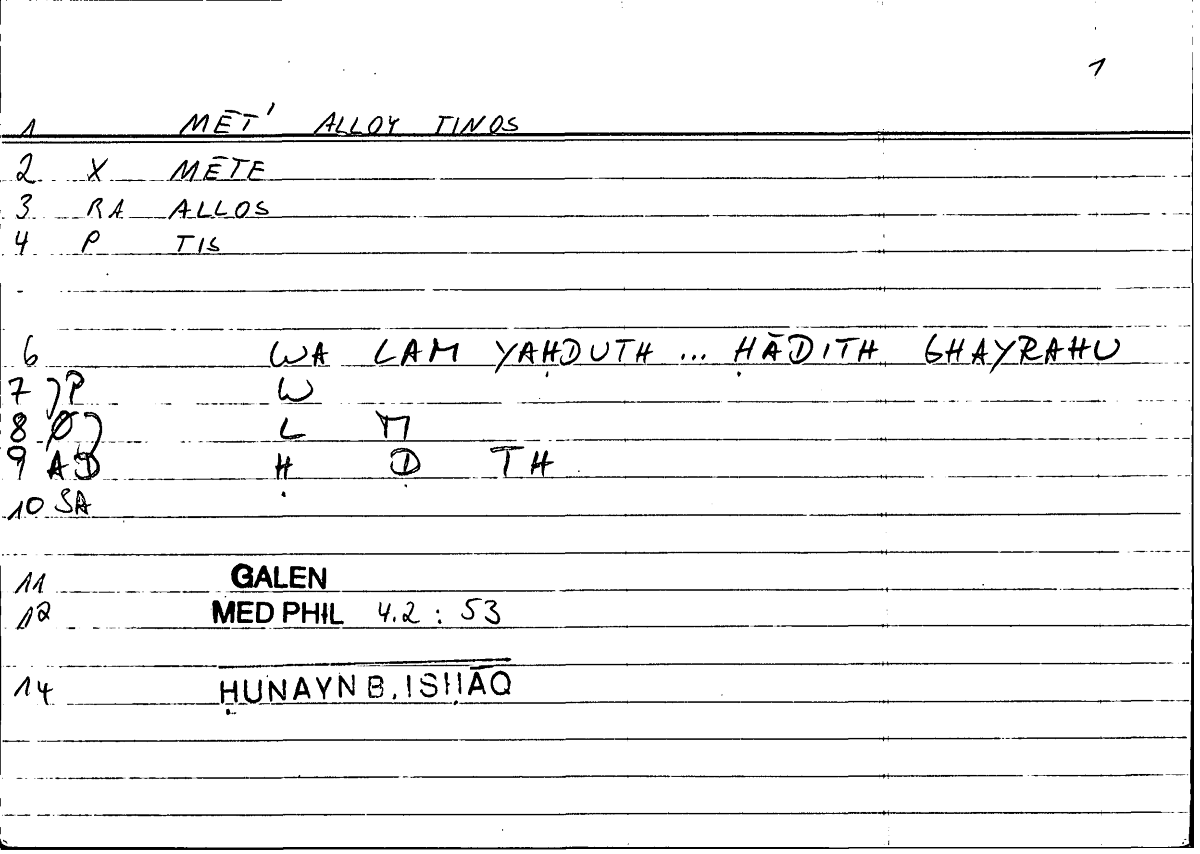 1
1 MĒT' ALLOY TINOS
2 X MĒTE
3 RA ALLOS
4 P TIS
6 WA LAM YAḤDUTH ... ḤĀDITH GHAYRAHU
7 )P W
8 Ø) L M
9 AD Ḥ D TH
10 SA
11 GALEN
12 MED PHIL 4.2 : 53
14 ḤUNAYN B. ISḤĀQ